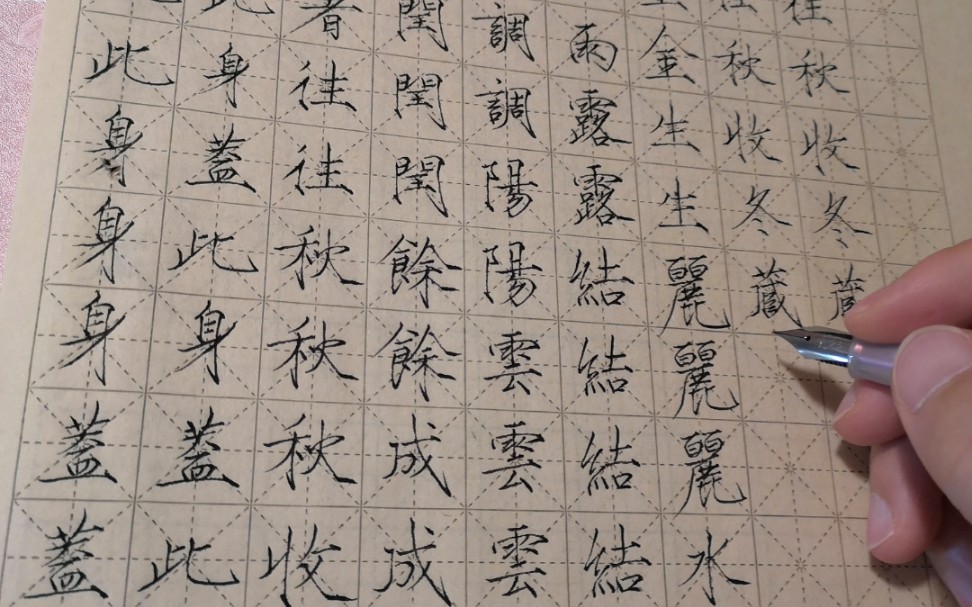 往秋收冬藏
秋收冬藏
金生生麗麗麗水
雨露露結結結結
調調陽陽雲雲雲
閏閏閏餘餘成成
往往秋秋秋收
此身蓋此身蓋此
此身身身蓋蓋